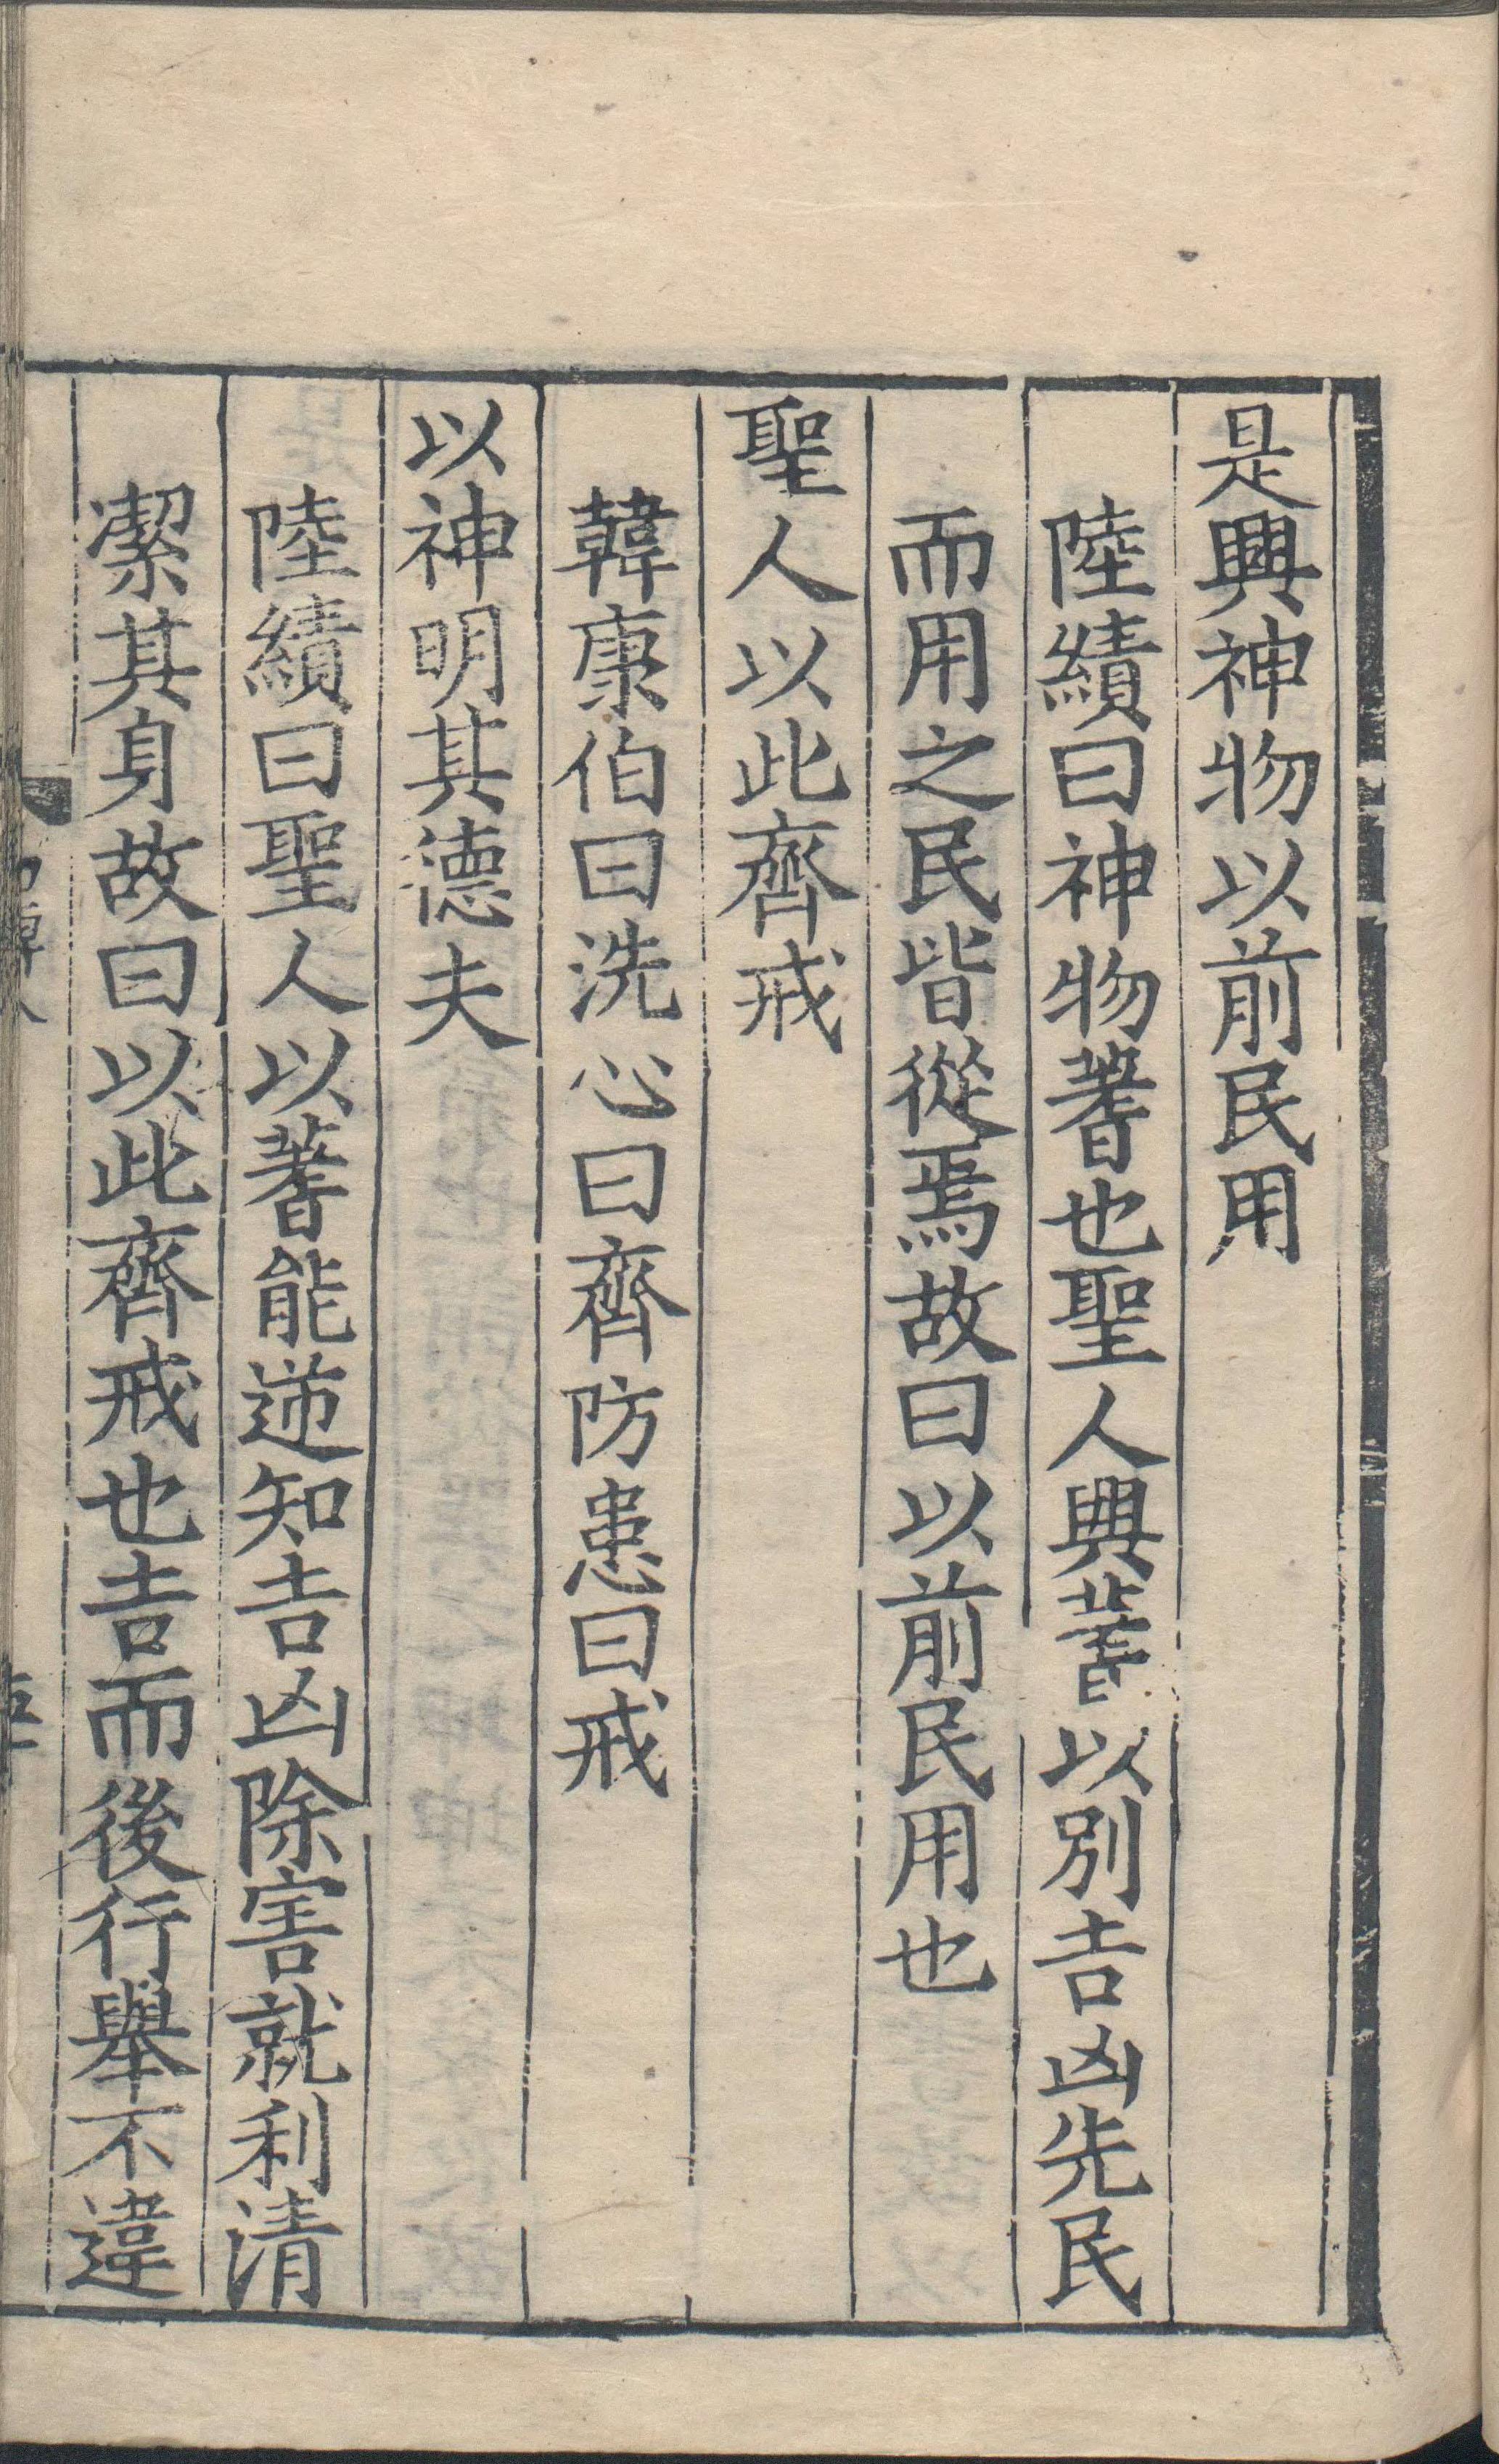 是興神物以前民用
陸績曰神物蓍也聖人興蓍以別吉凶先民
而用之民皆從焉故曰以前民用也
聖人以此齊戒
韓康伯曰洗心曰齊防患曰戒
以神明其德夫
陸績曰聖人以蓍能逆知吉凶除害就利清
潔其身故曰以此齊戒也吉而後行舉不違